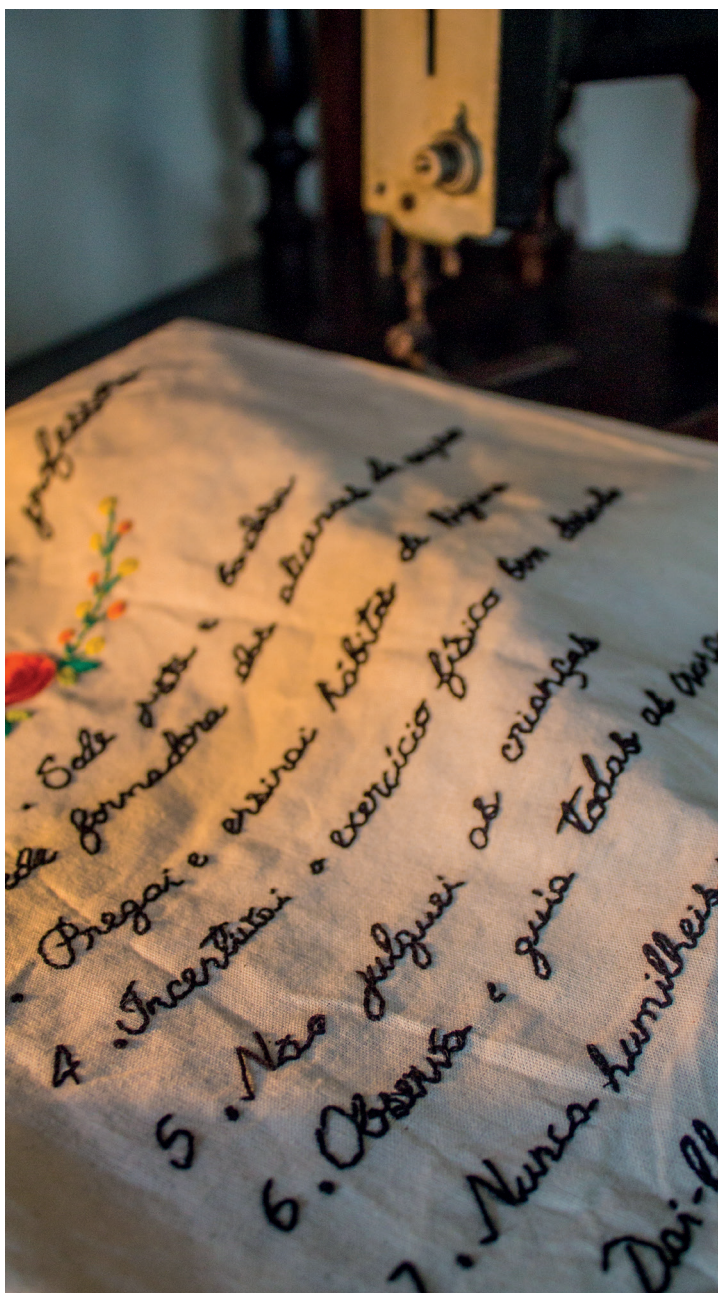 professora
. Sede justa e
formadora dos alicerces da
. Pregai e ensinai hábitos de higiene
4 . Incentivai o exercício físico
5 . Não julguei as crianças
6 . Observa e guia todas as
7 . Nunca humilheis
Dai-